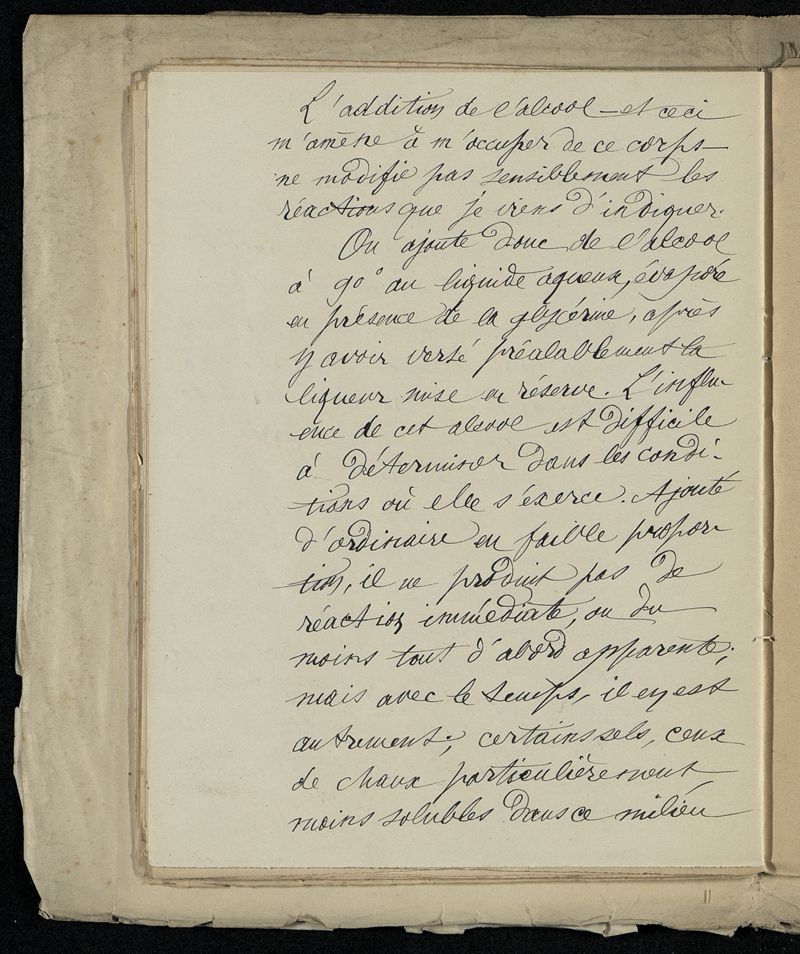 L'addition de l'alcool — et ceci
m'amène à m'occuper de ce corps —
ne modifie pas sensiblement les
réactions que je viens d'indiquer.
On ajoute donc de l'alcool
à 90° au liquide aqueux, évaporé
en présence de la glycérine, après
y avoir versé préalablement la
liqueur mise en réserve. L'influ-
ence de cet alcool est difficile
à déterminer dans les condi-
tions où elle s'exerce. Ajouté
d'ordinaire en faible propor-
tion, il ne produit pas de
réaction immédiate, ou du
moins tout d'abord apparente;
mais avec le temps, il en est
autrement; certains sels, ceux
de chaux particulièrement,
moins solubles dans ce milieu